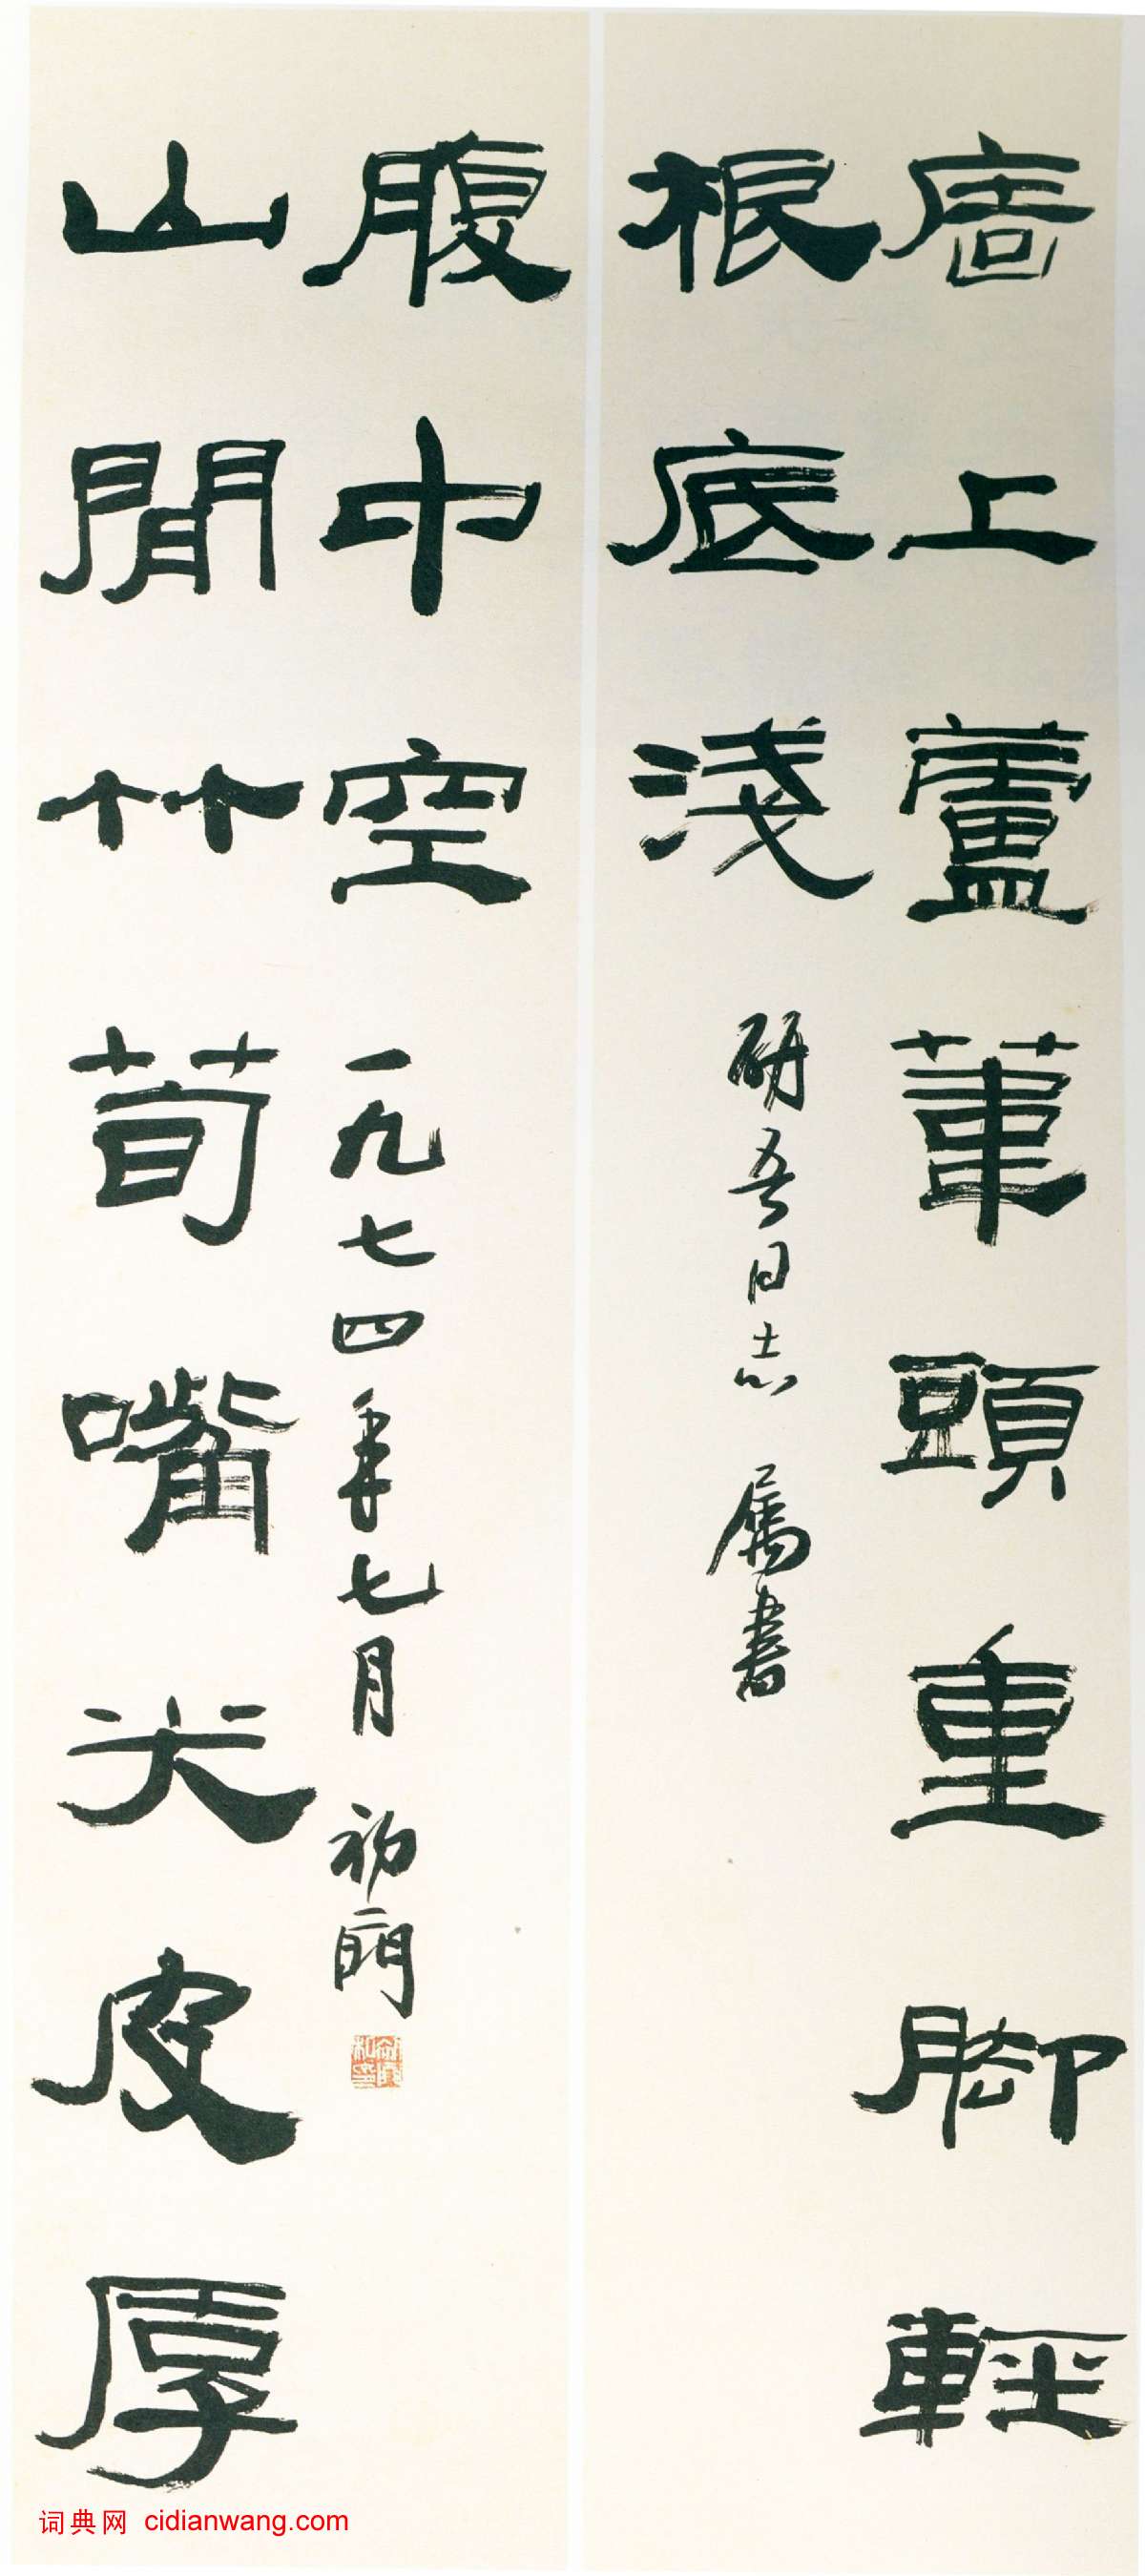 廧上廬葦頭重脚輕
根底淺
研吾同志 属書
山閒竹筍嘴尖皮厚
腹中空
一九七四年七月
词典网 cidianwang.com